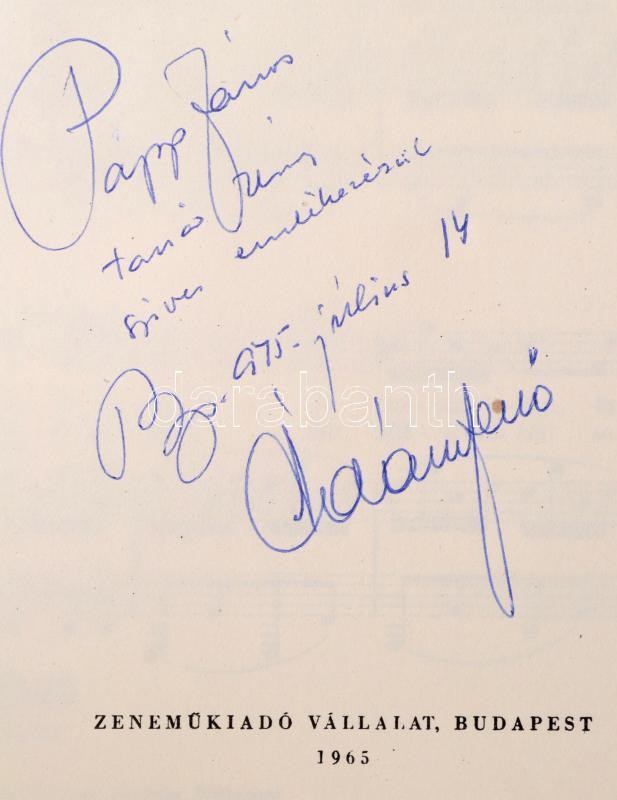 Papp János
tanár
szives emlékezésül
Bp. 975. július 14
Ádám Jenő
darabanth
ZENEMŰKIADÓ VÁLLALAT, BUDAPEST
1965